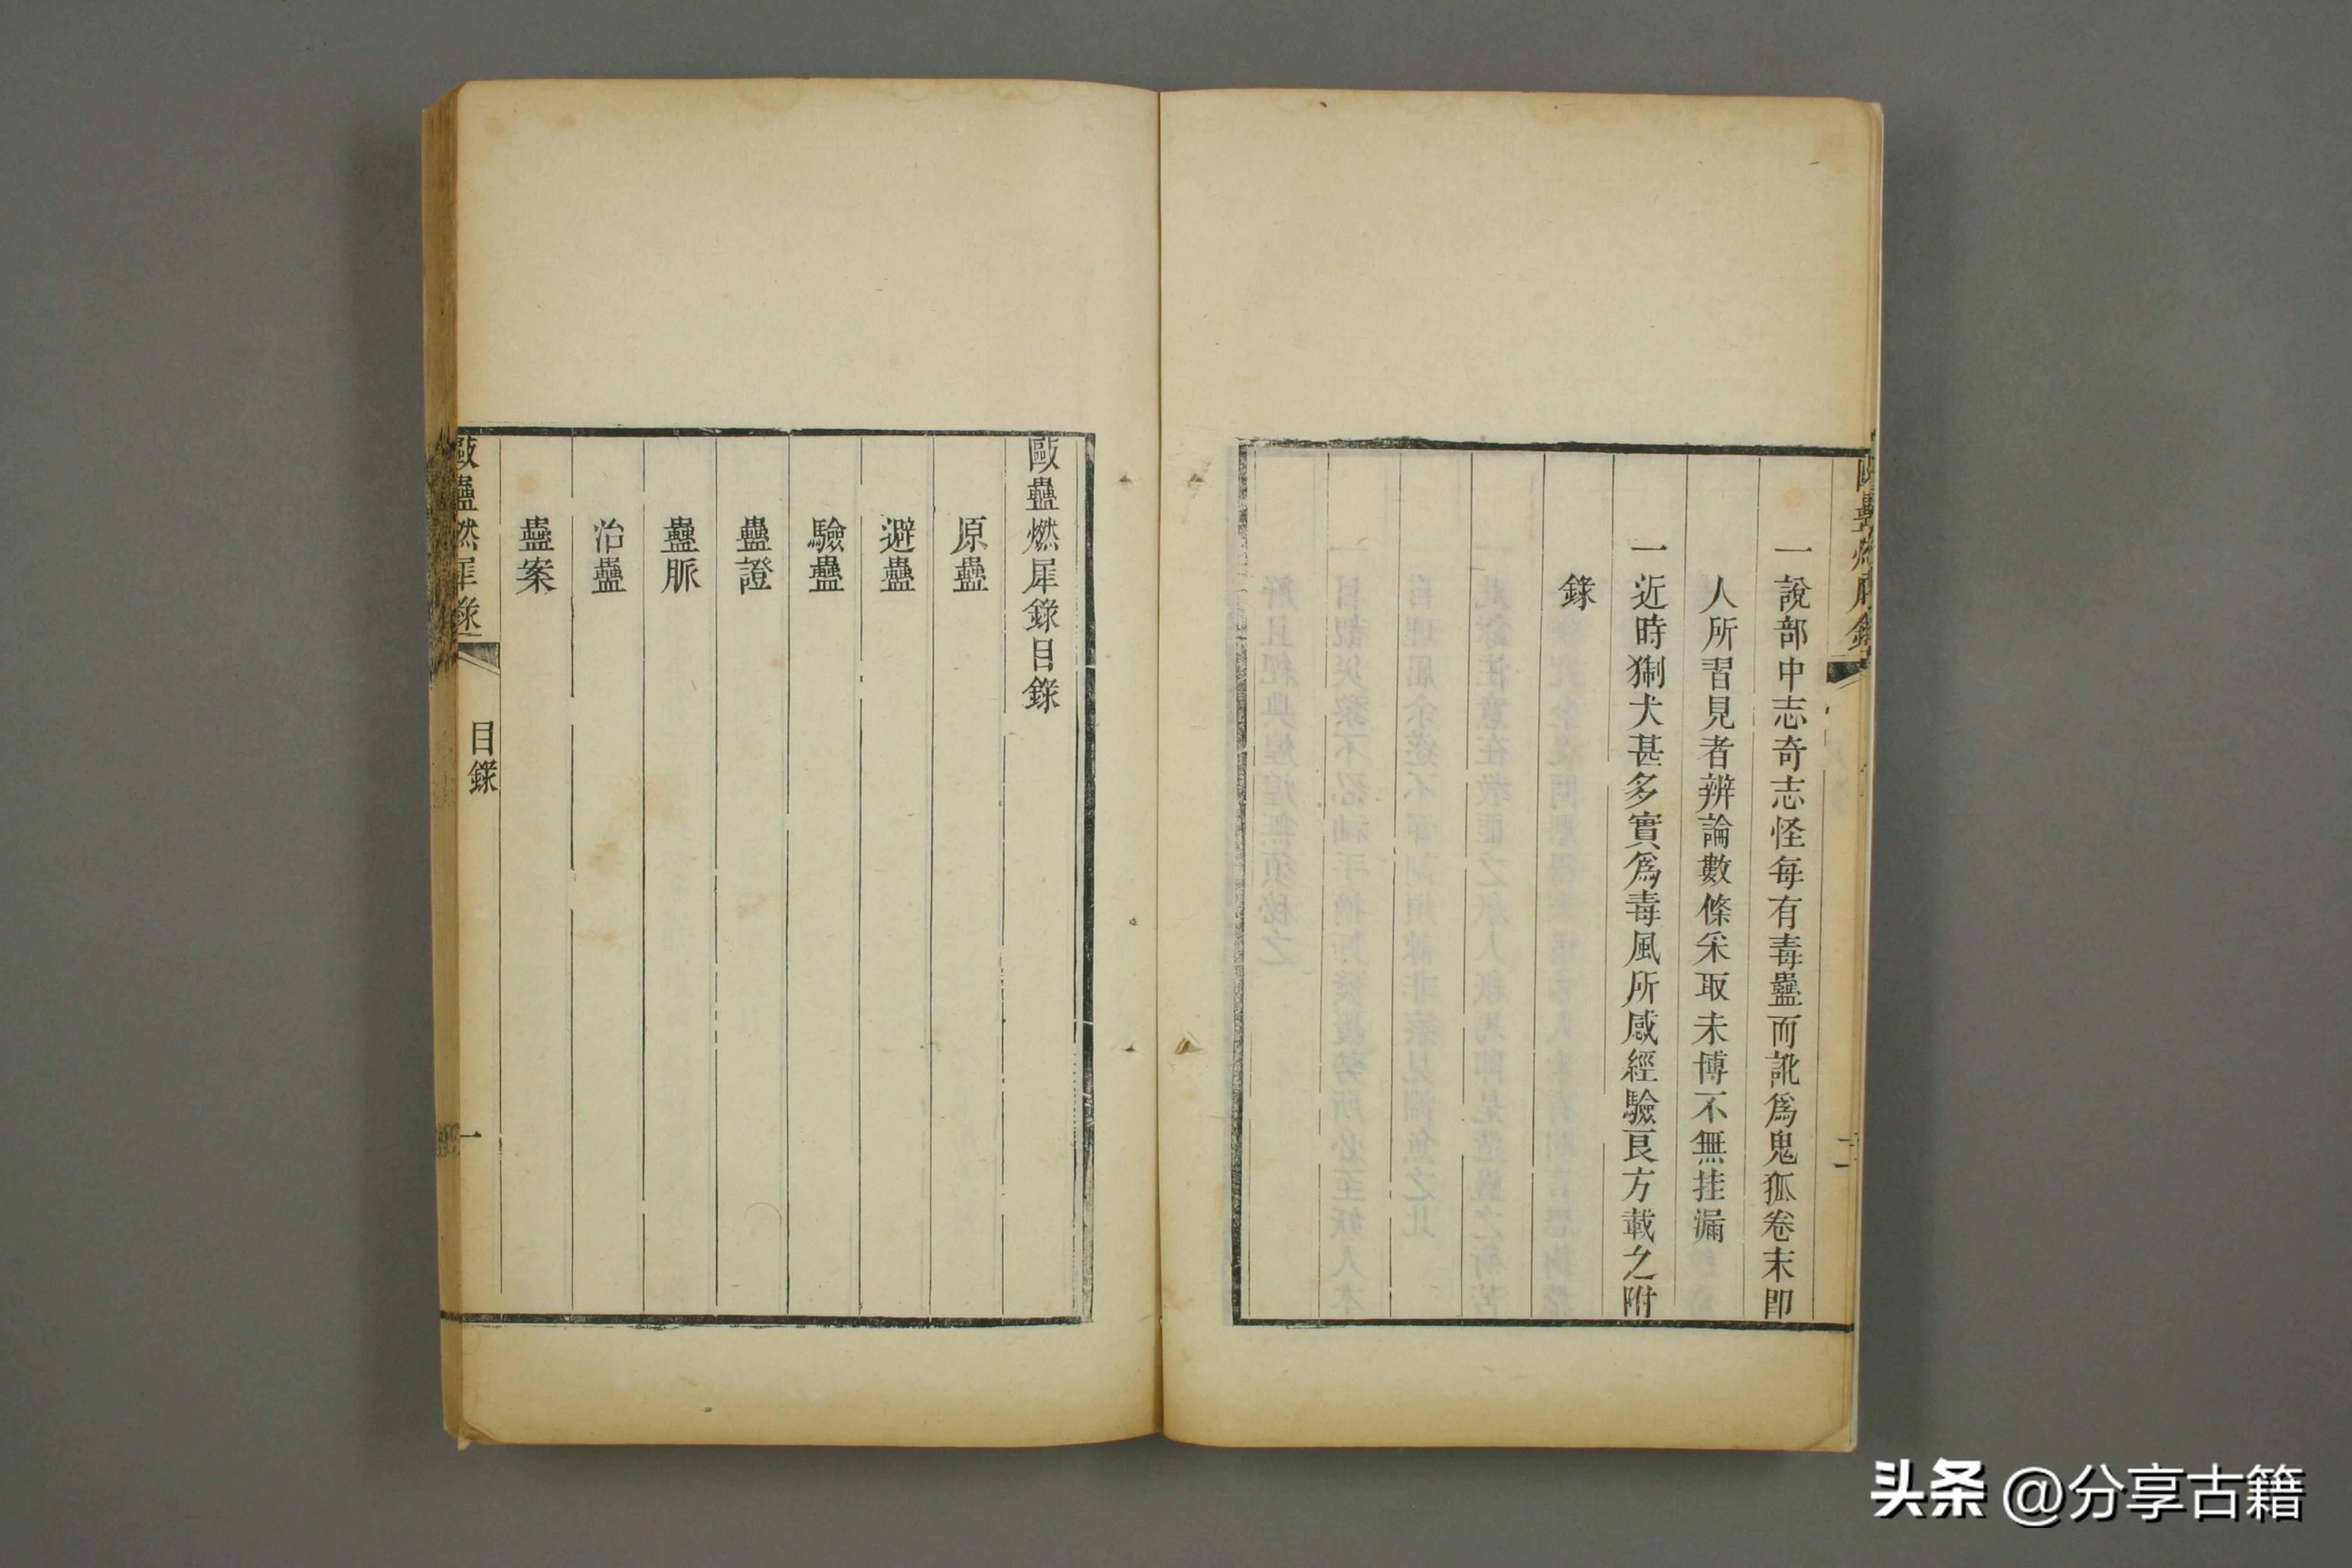 一說部中志奇志怪每有毒蠱而訛爲鬼狐卷末卽
人所習見者辨論數條采取未博不無挂漏
一近時猘犬甚多實爲毒風所感經驗良方載之附
錄
敺蠱燃犀錄目錄
原蠱
避蠱
驗蠱
蠱證
蠱脈
治蠱
蠱案
敺蠱燃犀錄
目錄
一
头条 @分享古籍